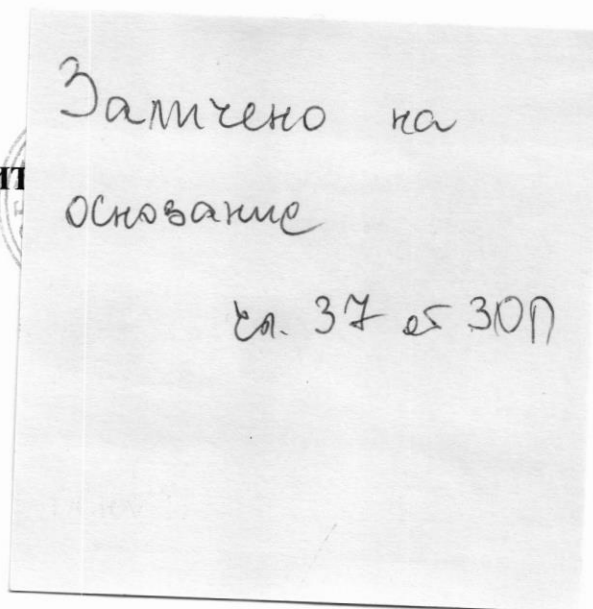 Заличено на
ИТ
основание
чл. 37 от ЗОП